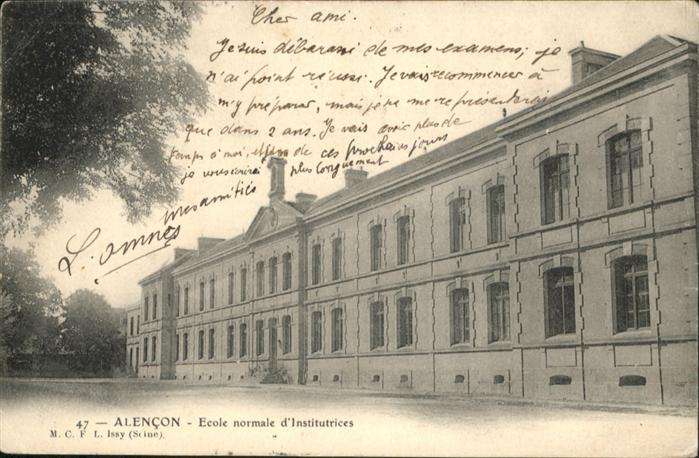 Cher ami.
Je suis débarassé de mes examens; je
n'ai point réussi. Je vais recommencer à
m'y préparer, mais je ne me représenterai
que dans 2 ans. Je vais avoir plus de
temps à moi, et de ces prochains jours
je vous écrirai plus longuement
Mes amitiés
L. Omnès
47 — ALENÇON - Ecole normale d'Institutrices
M. C. F. L. Issy (Seine).